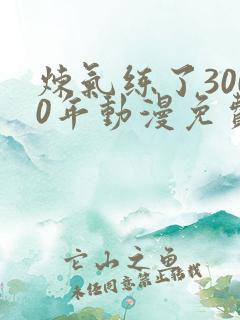 煉氣練了300
0年動漫免費
它山之魚
未經同意禁止掊載